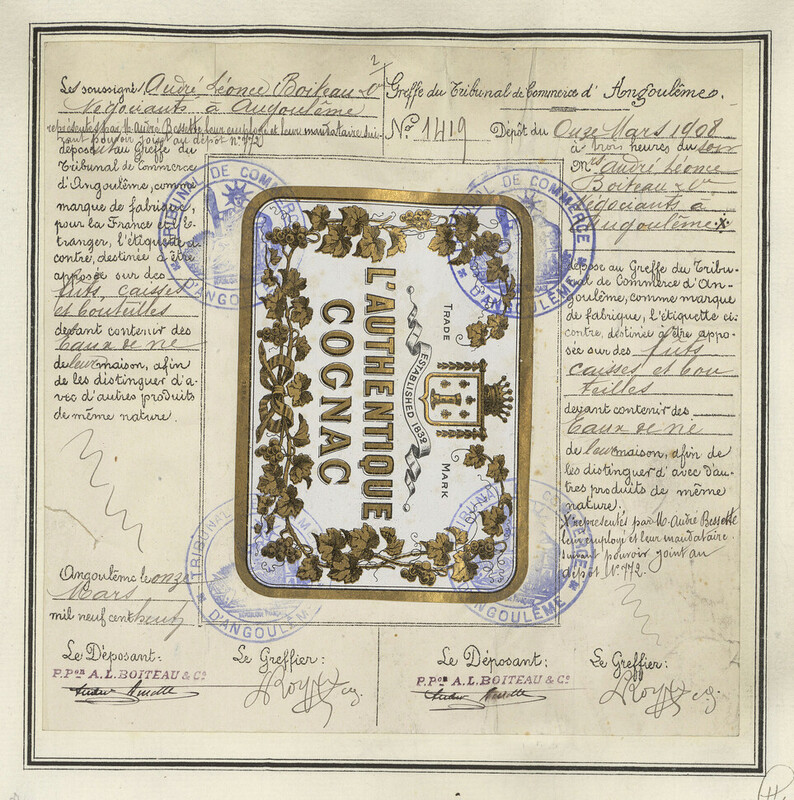 2
Les soussignés, André Léonce Boiteau & Cie
Négociants à Angoulême
représentés par M. André Bessette, leur employé et leur mandataire sui-
vant pouvoir joint au dépôt N° 772
déposent au Greffe du
Tribunal de Commerce
d'Angoulême, comme
marque de fabrique,
pour la France et l'é-
tranger, l'étiquette ci-
contre, destinée à être
apposée sur des
fûts, caisses
et bouteilles
devant contenir des
Eaux de vie
de leur maison, afin
de les distinguer d'a-
vec d'autres produits
de même nature.
Angoulême le onze
Mars
mil neuf cent huit
Le Déposant:
P. Pon A. L. BOITEAU & Co
Le Greffier:
TRADE MARK
ESTABLISHED 1832
L'AUTHENTIQUE
COGNAC
TRIBUNAL DE COMMERCE
D'ANGOULÊME
TRIBUNAL DE COMMERCE
D'ANGOULÊME
TRIBUNAL DE COMMERCE
D'ANGOULÊME
TRIBUNAL DE COMMERCE
D'ANGOULÊME
Greffe du Tribunal de Commerce d'Angoulême.
N° 1419 Dépôt du Onze Mars 1908
à trois heures du soir
Mrs André Léonce
Boiteau & Cie
Négociants à
Angoulême x
dépose au Greffe du Tribu-
nal de Commerce d'An-
goulême, comme marque
de fabrique, l'étiquette ci-
contre, destinée à être appo-
sée sur des fûts
caisses et bou
teilles
devant contenir des
Eaux de vie
de leur maison, afin de
les distinguer d'avec d'au-
tres produits de même
nature.
x représentés par M. André Bessette
leur employé et leur mandataire.
suivant pouvoir joint au
dépôt N° 772.
Le Déposant:
P. Pon A. L. BOITEAU & Co
Le Greffier: